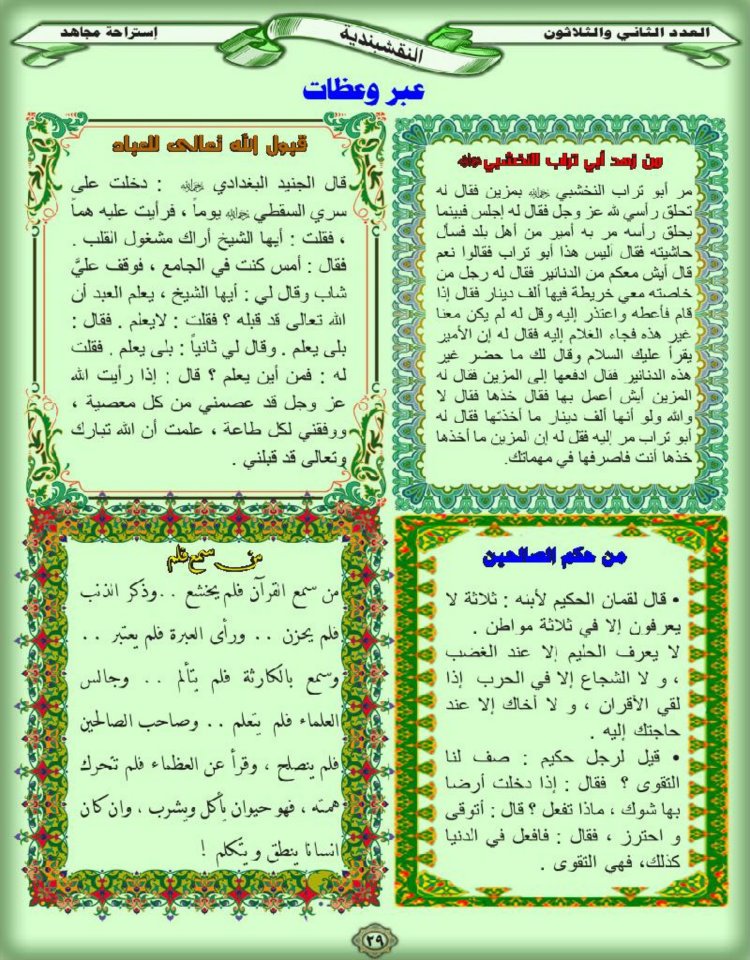 العدد الثاني والثلاثون
النقشبندية
إستراحة مجاهد
عبر وعظات
من زهد أبي تراب النخشبي
مر أبو تراب النخشبي بمزين فقال له
تحلق رأسي لله عز وجل فقال له إجلس فبينما
يحلق رأسه مر به أمير من أهل بلد فسأل
حاشيته فقال أليس هذا أبو تراب فقالوا نعم
قال أيش معكم من الدنانير فقال له رجل من
خاصته معي خريطة فيها ألف دينار فقال إذا
قام فأعطه واعتذر إليه وقل له لم يكن معنا
غير هذه فجاء الغلام إليه فقال له إن الأمير
يقرأ عليك السلام وقال لك ما حضر غير
هذه الدنانير فقال ادفعها إلى المزين فقال له
المزين أيش أعمل بها فقال خذها فقال لا
والله ولو أنها ألف دينار ما أخذتها فقال له
أبو تراب مر إليه فقل له إن المزين ما أخذها
خذها أنت فاصرفها في مهماتك.
قبول الله تعالى للعباد
قال الجنيد البغدادي : دخلت على
سري السقطي يوماً ، فرأيت عليه هماً
، فقلت : أيها الشيخ أراك مشغول القلب .
فقال : أمس كنت في الجامع ، فوقف عليَّ
شاب وقال لي : أيها الشيخ ، يعلم العبد أن
الله تعالى قد قبله ؟ فقلت : لايعلم . فقال :
بلى يعلم . وقال لي ثانياً : بلى يعلم . فقلت
له : فمن أين يعلم ؟ قال : إذا رأيت الله
عز وجل قد عصمني من كل معصية ،
ووفقني لكل طاعة ، علمت أن الله تبارك
وتعالى قد قبلني .
من حكم الصالحين
• قال لقمان الحكيم لأبنه : ثلاثة لا
يعرفون إلا في ثلاثة مواطن .
لا يعرف الحليم إلا عند الغضب
، و لا الشجاع إلا في الحرب إذا
لقي الأقران ، و لا أخاك إلا عند
حاجتك إليه .
• قيل لرجل حكيم : صف لنا
التقوى ؟ فقال : إذا دخلت أرضا
بها شوك ، ماذا تفعل ؟ قال : أتوقى
و احترز ، فقال : فافعل في الدنيا
كذلك، فهي التقوى .
من سمع فلم
من سمع القرآن فلم يخشع . . وذكر الذنب
فلم يحزن . . ورأى العبرة فلم يعتبر . .
وسمع بالكارثة فلم يتألم . . وجالس
العلماء فلم يتعلم . . وصاحب الصالحين
فلم ينصلح ، وقرأ عن العظماء فلم تتحرك
همته ، فهو حيوان يأكل ويشرب ، وان كان
انسانا ينطق و يتكلم !
٢٩